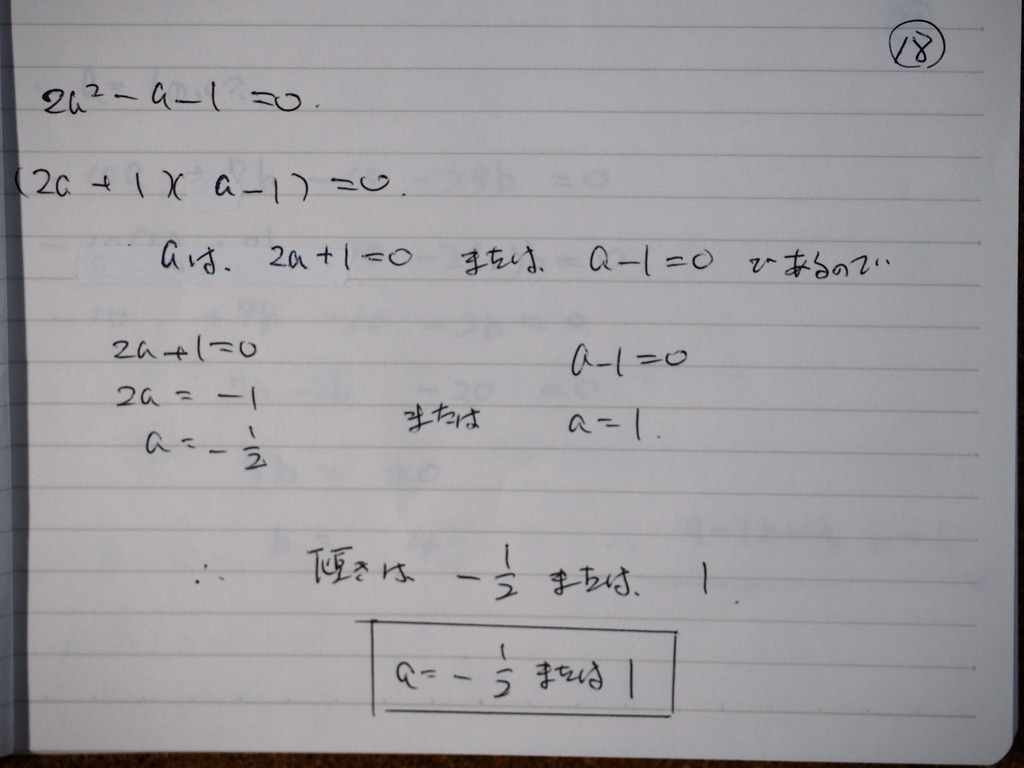 ⑱
2a² - a - 1 = 0.
(2a + 1)(a - 1) = 0.
aは、 2a + 1 = 0 または、 a - 1 = 0 であるので
2a + 1 = 0 a - 1 = 0
2a = -1
または a = 1.
a = - 1/2
∴ 傾きは - 1/2 または、 1.
a = - 1/2 または 1